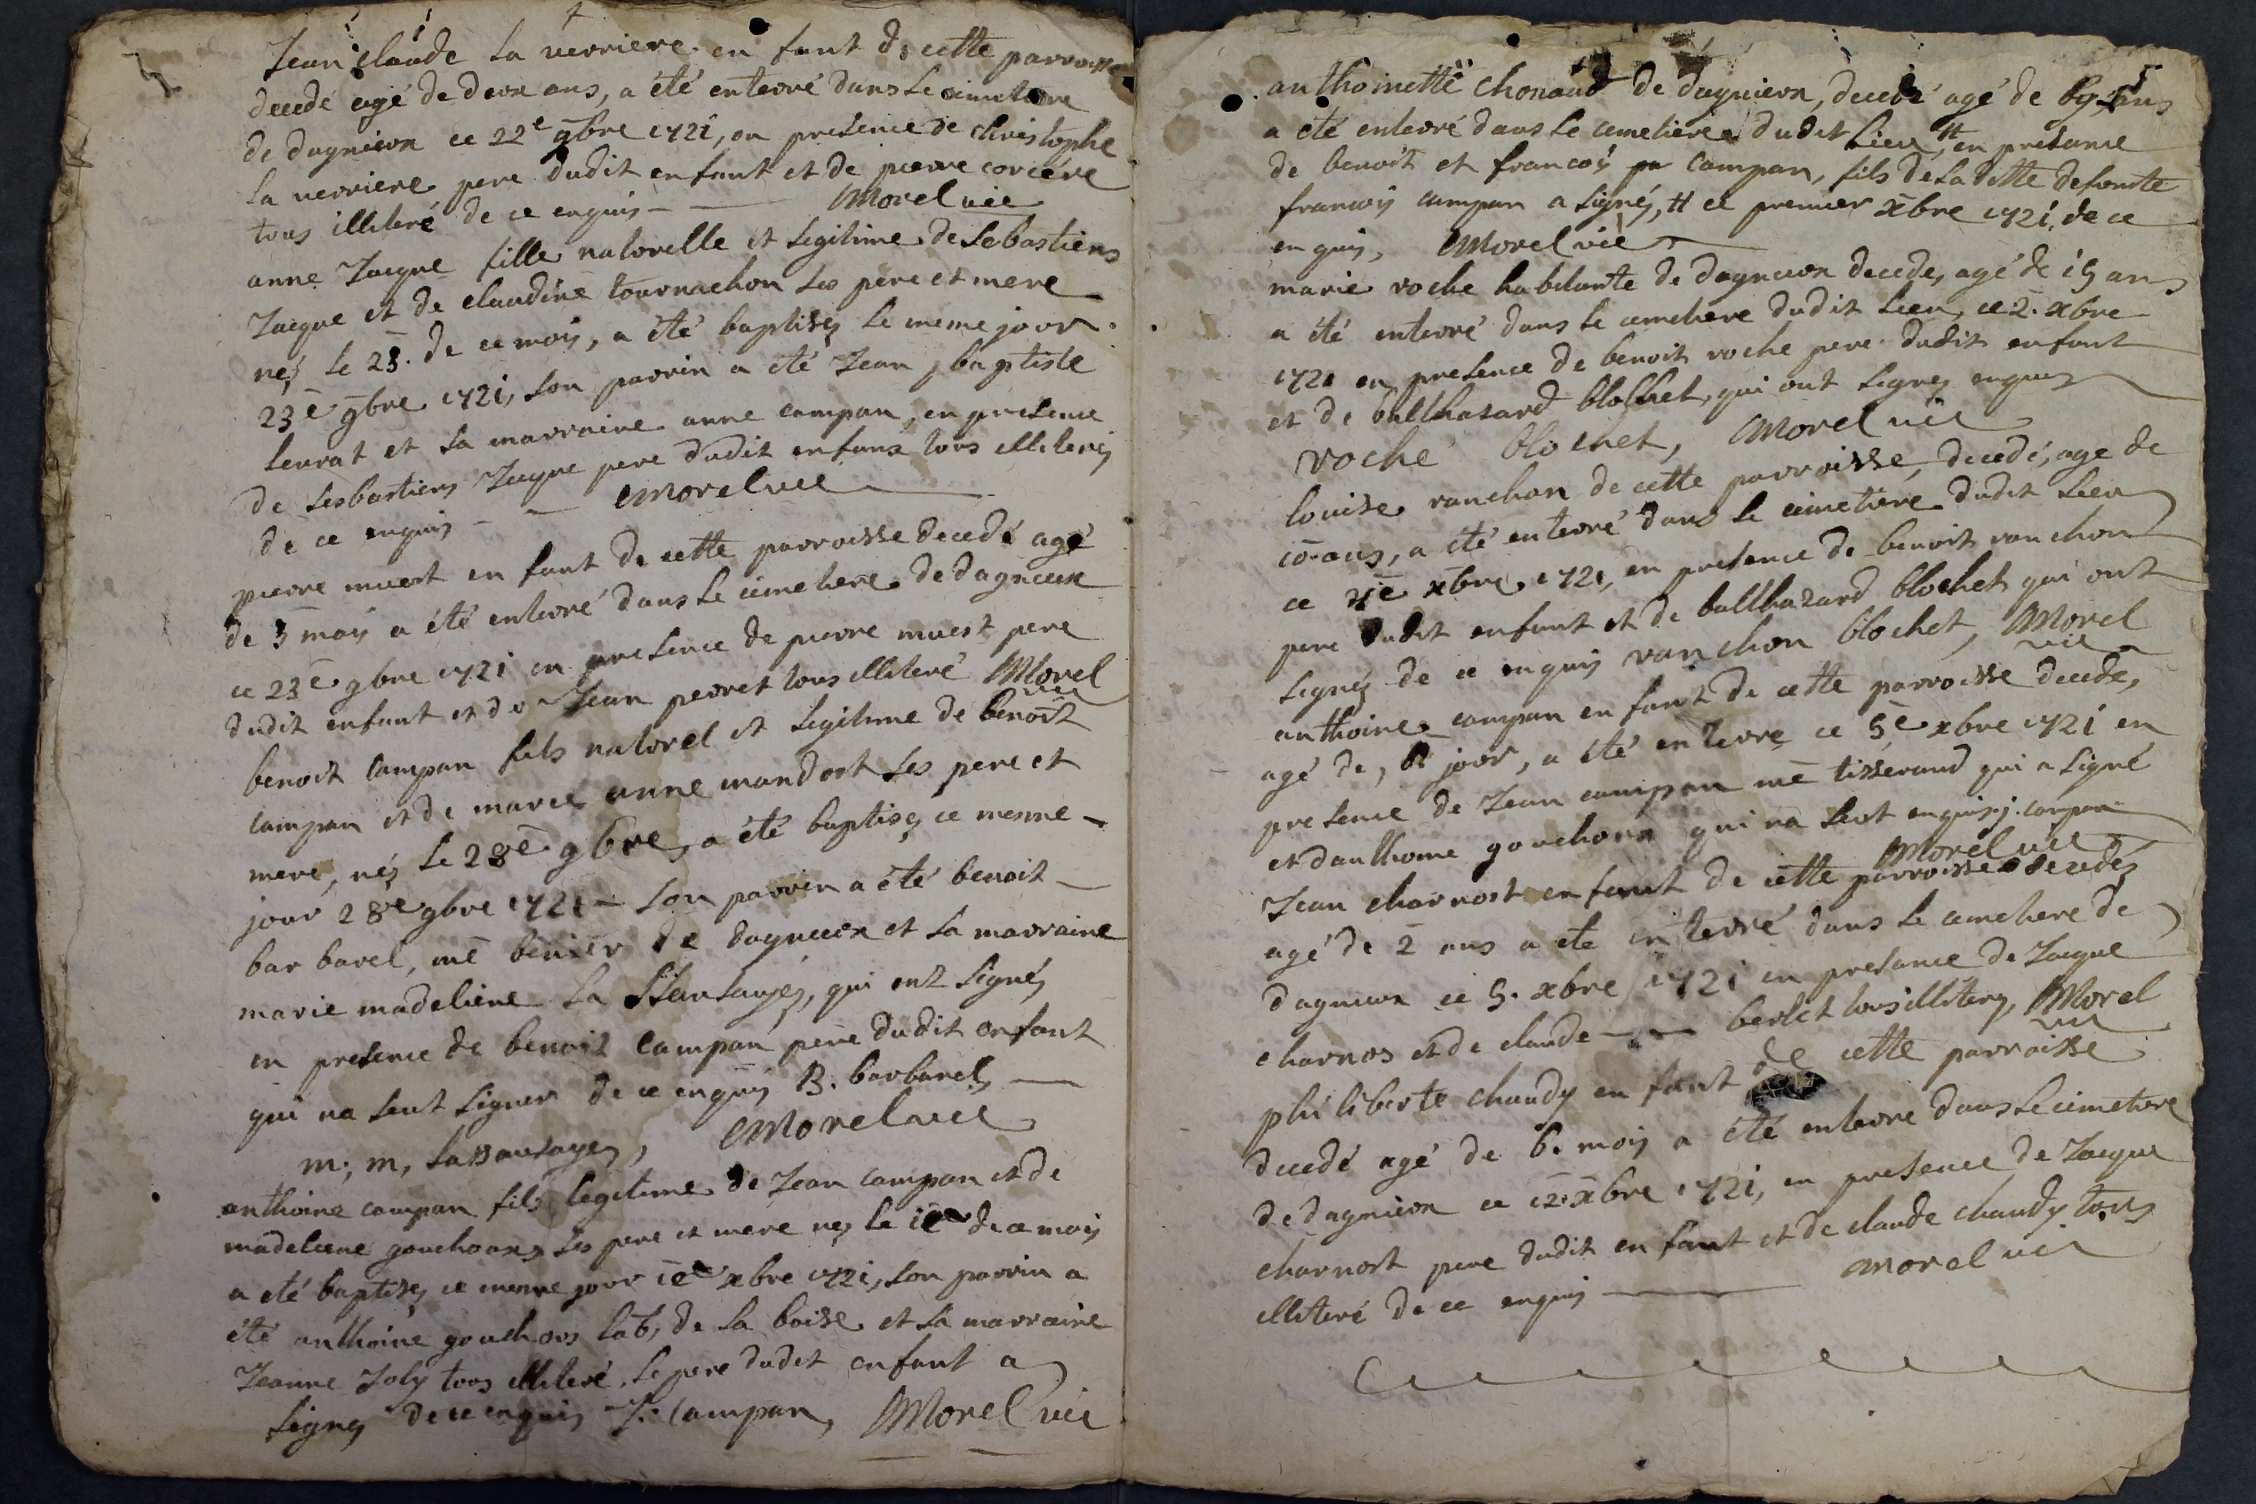 Jean claude la verriere en fant de cette parroisse
decedé agé de deux ans, a été enterré dans le cimetiere
de dagnieux ce 22e 9bre 1721, en presence de christophe
la verriere pere dudit enfant et de pierre corcéré
tous illiteré de ce enquis - Morel vic
anne Jacque fille naturelle et legitime de sebastiens
Jacque et de claudine tournachon ses pere et mere
néz le 23. de ce mois, a été baptiséz le meme jour
23e 9bre 1721, son parrin a été Jean baptiste
leurat et sa marraine anne campan, en presence
de sesbastiens Jacque pere dudit enfans tous illiteréz
de ce enquis - - Morel vic
pierre muest en fant de cette parroisse decedé agé
de 3 mois a été enterré dans le cimetiere de dagneux
ce 23e 9bre 1721 en presence de pierre muest pere
dudit enfant et de Jean perret tous illiteré Morel
vic
benoit campan fils naturel et legitime de benoît
campan et de marie anne mandost ses pere et
mere, néz le 28e 9bre, a été baptiséz ce mesme -
jour 28e 9bre 1721 - son parrin a été benoit -
bar barel, me de dagneux et sa marraine
marie madeliene la, qui ont signéz
en presence de benoit campan pere dudit enfant
qui na seut signer de ce enquis B. barbarel -
m, m, Morel vic
anthoine campan fils legitime de Jean campan et de
madeleene gouchoux, ses pere et mere néz le 1er de ce mois
a été baptiséz ce mesme jour 1er xbre 1721, son parrin a
été anthoine gouchoux lab, de la boisse et sa marraine
Jeanne Joly tous illiteré, le pere dudit enfant a
signéz de ce enquis J: Campan, Morel vic
5
anthoinette chonaud de dagnieux, decedé agé de ans
a été enterré dans le cemetiere dudit lieu, # en presance
de benoît et francoi campan, fils de la ditte defunte
francois campan a signéz, # ce premier xbre 1721, de ce
enquis, Morel vic
marie roche habitante de dagneux decede, agé de 15 ans
a été enterré dans le cimetiere dudit lieu, ce 2. xbre
1721 en presence de benoit roche pere dudit enfant
et de balthasard blochet, qui ont signéz enquis
roche blochet, Morel vic
louise ranchon de cette parroisse, decedé, age de
10 ans, a été enterré dans le cimetiere dudit lieu
ce 4e xbre 1721, en presence de benoit ranchon
pere dudit enfant et de balthazard blochet qui ont
signéz de ce enquis ranchon blochet, Morel
vic
anthoine campan en fant de cette parroisse decede,
agé de, jour, a été enterre ce 5e xbre 1721 en
presence de Jean campan me tisserand qui a signé
et danthoine gouchoux qui na seut enquis j. campan
Morel vic
Jean charnost en fant de cette parroisse decedéz
agé de 2 ans a ete enterré dans le cimetiere de
dagneux ce 5. xbre 1721 en presance de Jacque
charnos et de claude - - berlet tous illiteréz, Morel
vic
philiberte chaudy en fant de cette parroisse
decedé agé de 6. mois a été enterre dans le cimetiere
de dagnieux ce 12. xbre 1721, en presence de Jacque
charnost pere dudit en fant et de claude chaudy tous
illiteré de ce enquis - Morel vic